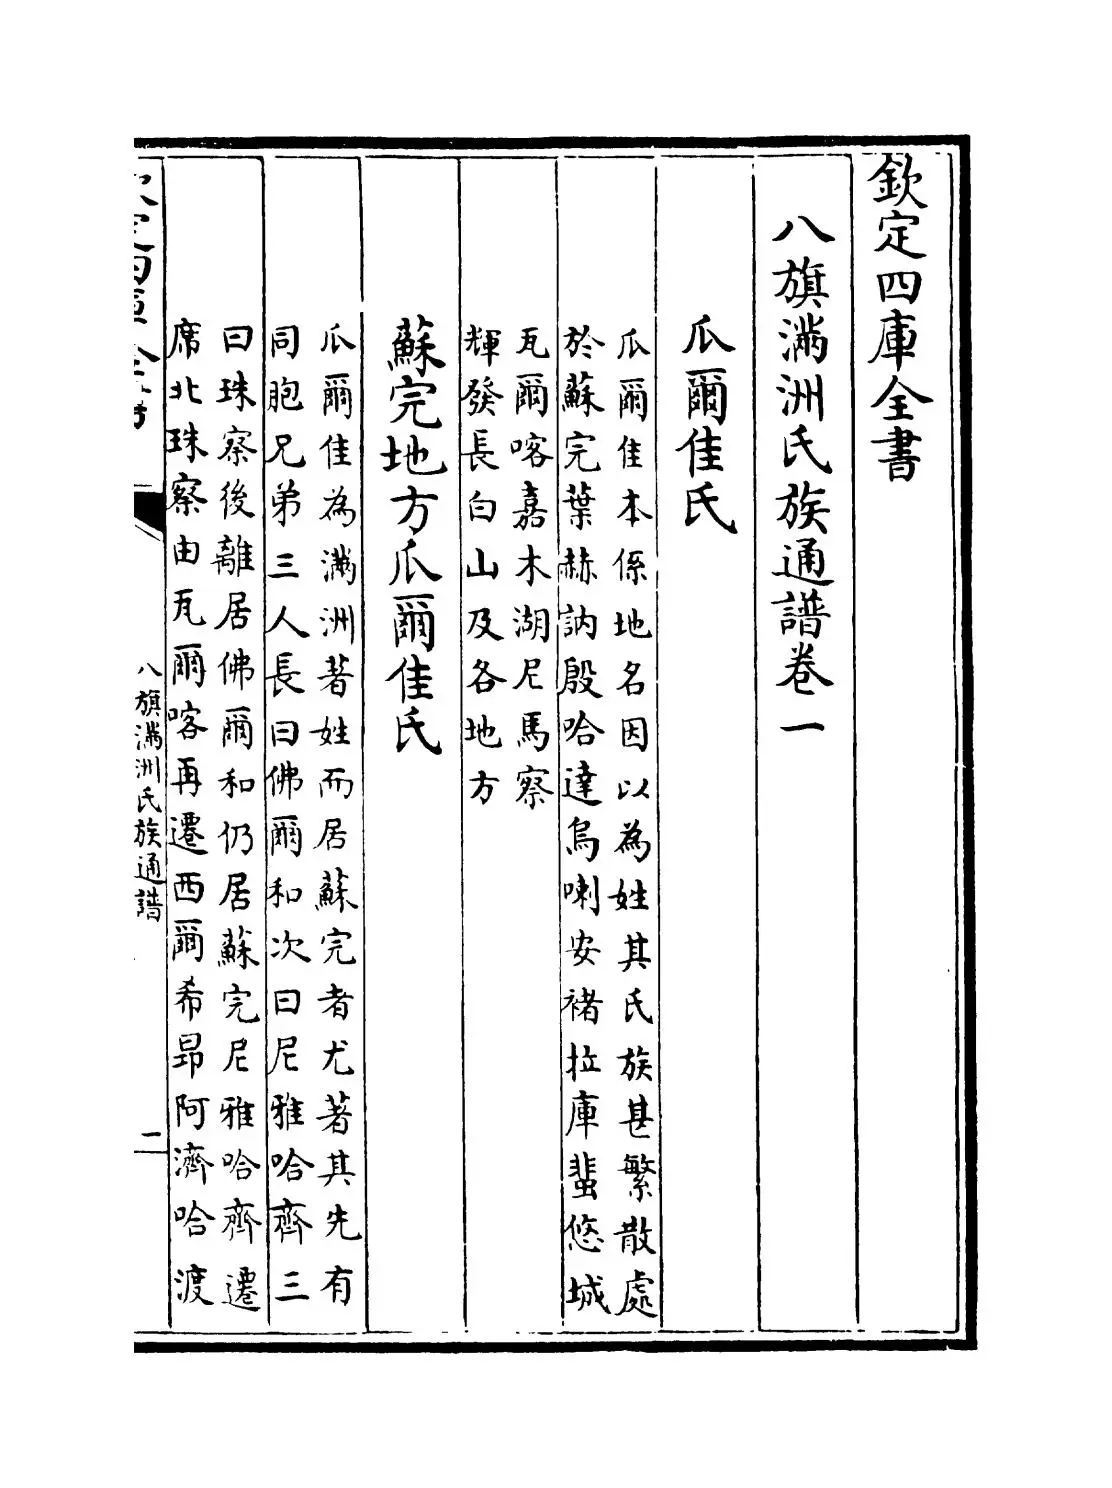 欽定四庫全書
八旗滿洲氏族通譜卷一
瓜爾佳氏
瓜爾佳本係地名因以為姓其氏族甚繁散處
於蘇完葉赫訥殷哈達烏喇安褚拉庫蜚悠城
瓦爾喀嘉木湖尼馬察
輝發長白山及各地方
蘇完地方瓜爾佳氏
瓜爾佳為滿洲著姓而居蘇完者尤著其先有
同胞兄弟三人長曰佛爾和次曰尼雅哈齊三
曰珠察後離居佛爾和仍居蘇完尼雅哈齊遷
席北珠察由瓦爾喀再遷西爾希昂阿濟哈渡
欽定四庫全書
八旗滿洲氏族通譜
二